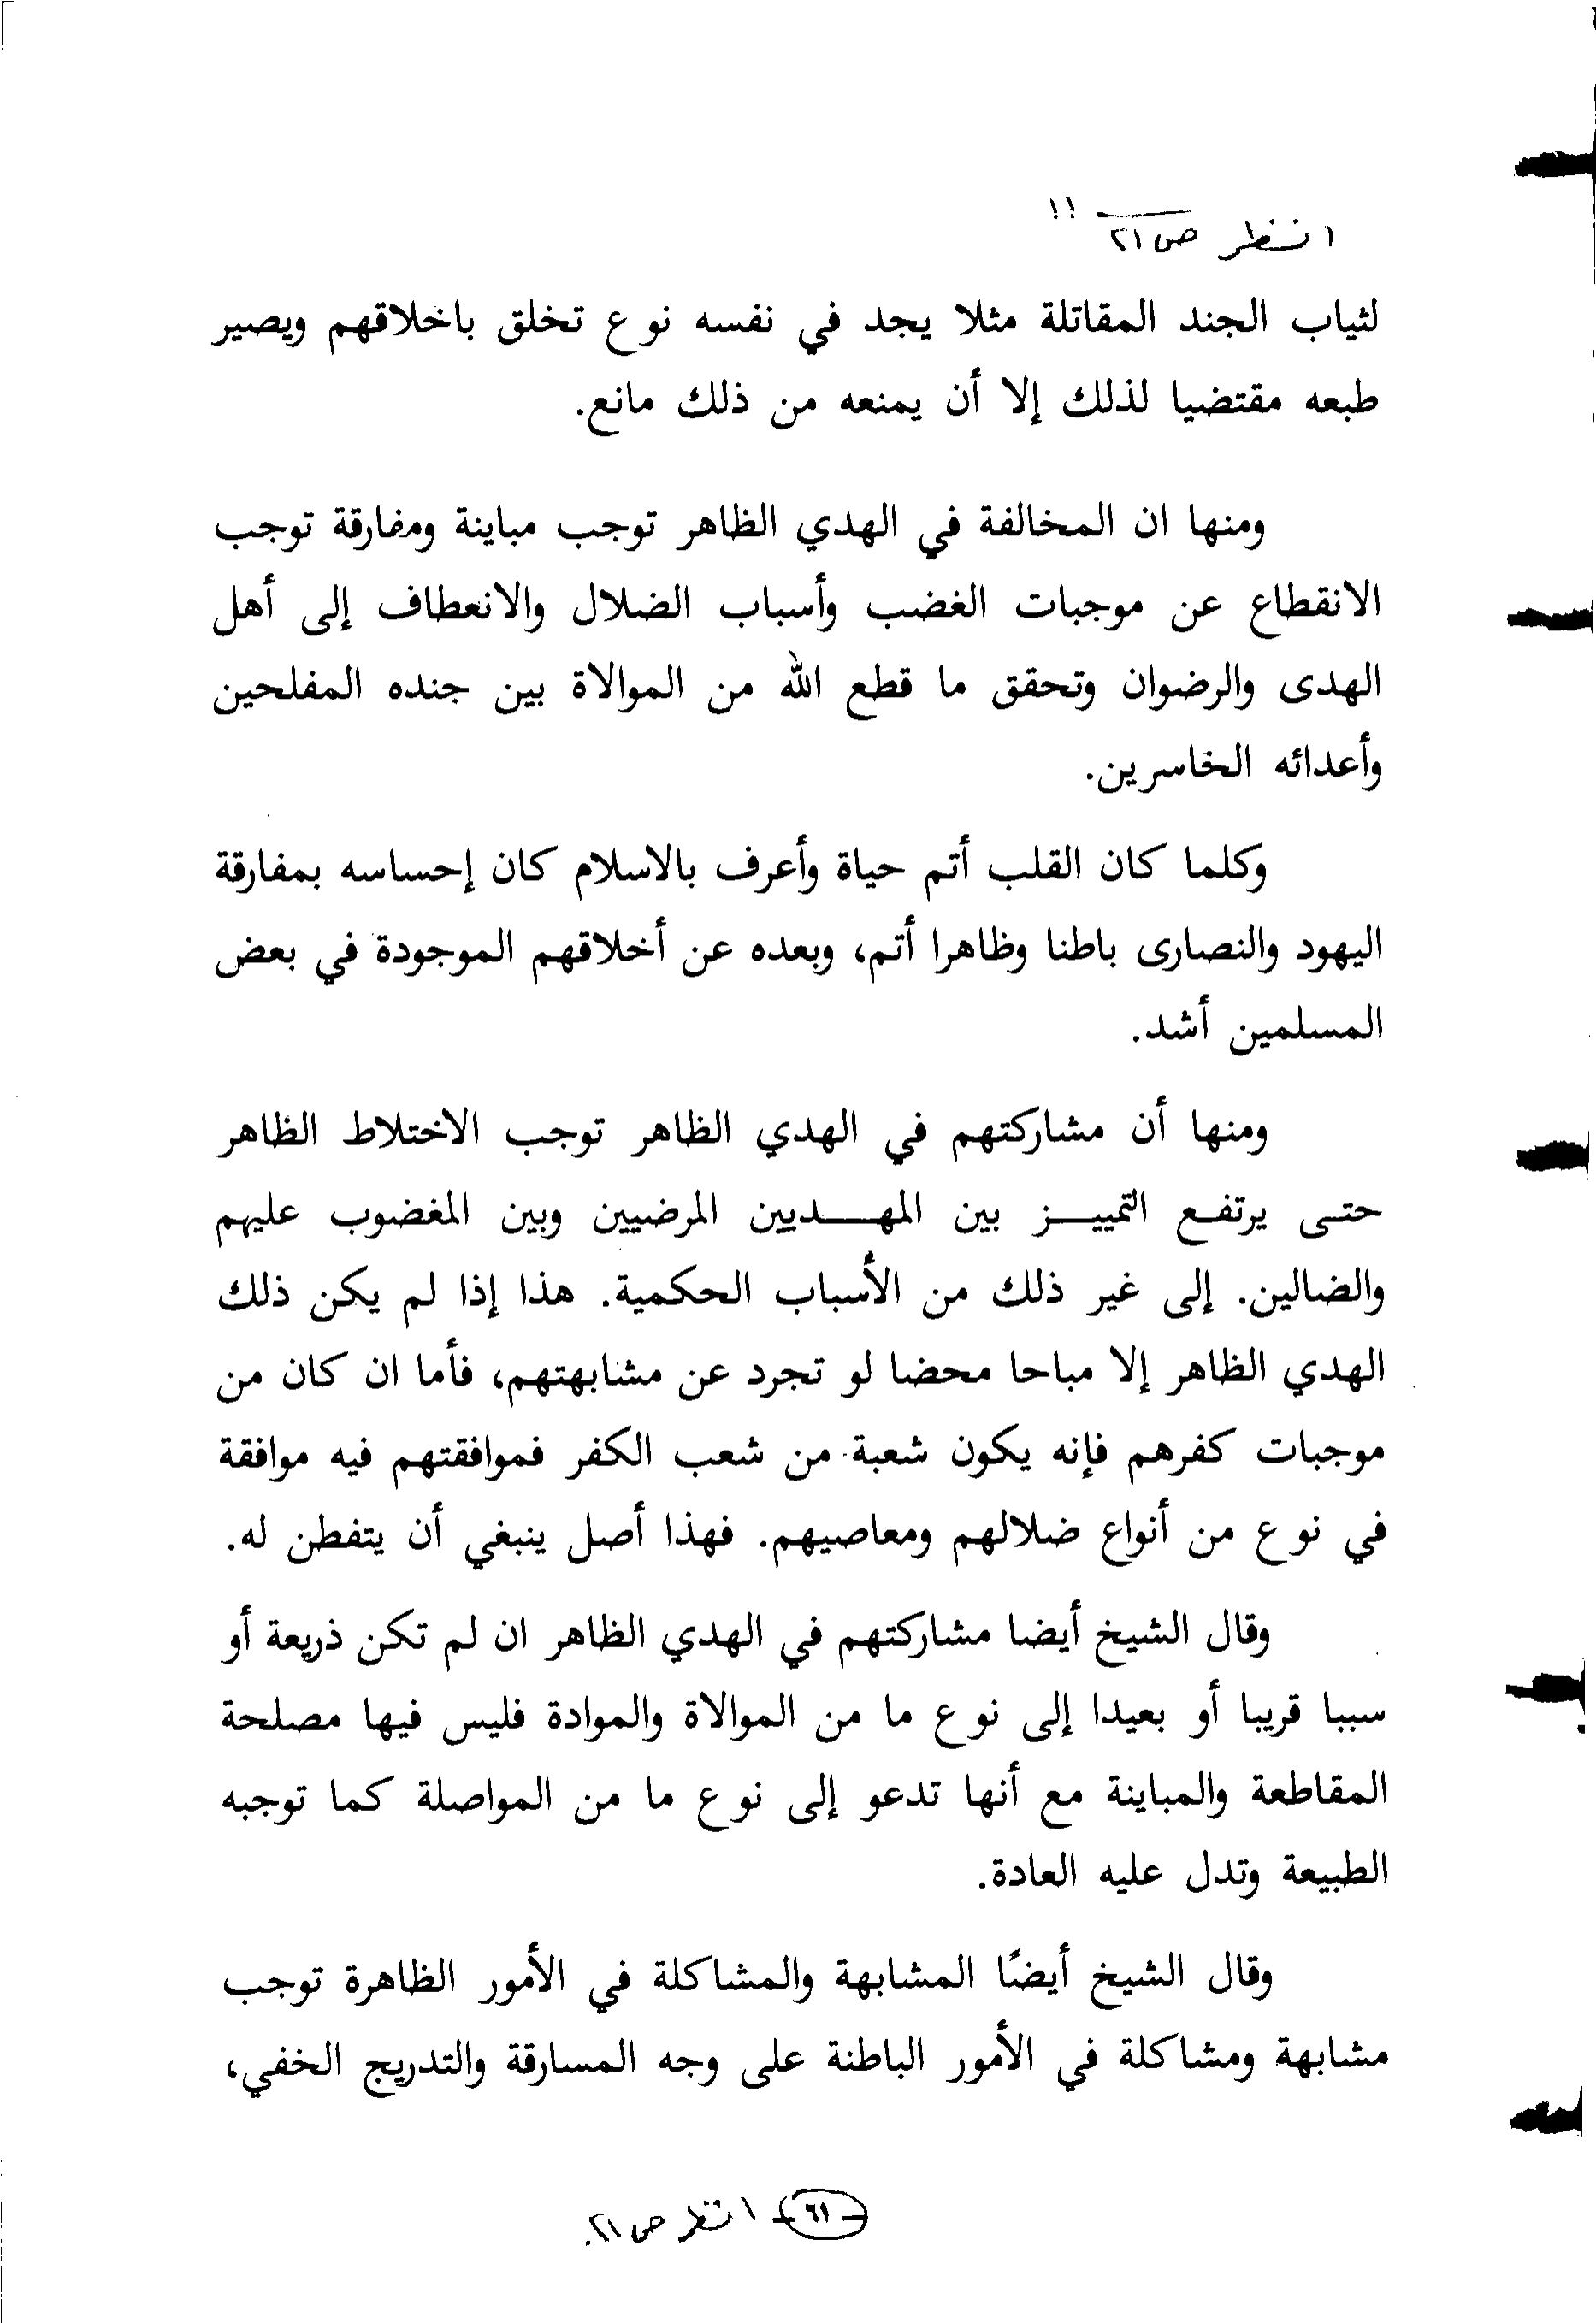 انظر ص ٢١ !!
لثياب الجند المقاتلة مثلا يجد في نفسه نوع تخلق باخلاقهم ويصير
طبعه مقتضيا لذلك إلا أن يمنعه من ذلك مانع.
ومنها ان المخالفة في الهدي الظاهر توجب مباينة ومفارقة توجب
الانقطاع عن موجبات الغضب وأسباب الضلال والانعطاف إلى أهل
الهدى والرضوان وتحقق ما قطع الله من الموالاة بين جنده المفلحين
وأعدائه الخاسرين.
وكلما كان القلب أتم حياة وأعرف بالاسلام كان إحساسه بمفارقة
اليهود والنصارى باطنا وظاهرا أتم، وبعده عن أخلاقهم الموجودة في بعض
المسلمين أشد.
ومنها أن مشاركتهم في الهدي الظاهر توجب الاختلاط الظاهر
حتى يرتفع التمييز بين المهديين المرضيين وبين المغضوب عليهم
والضالين. إلى غير ذلك من الأسباب الحكمية. هذا إذا لم يكن ذلك
الهدي الظاهر إلا مباحا محضا لو تجرد عن مشابهتهم، فأما ان كان من
موجبات كفرهم فإنه يكون شعبة من شعب الكفر فموافقتهم فيه موافقة
في نوع من أنواع ضلالهم ومعاصيهم. فهذا أصل ينبغي أن يتفطن له.
وقال الشيخ أيضا مشاركتهم في الهدي الظاهر ان لم تكن ذريعة أو
سببا قريبا أو بعيدا إلى نوع ما من الموالاة والموادة فليس فيها مصلحة
المقاطعة والمباينة مع أنها تدعو إلى نوع ما من المواصلة كما توجبه
الطبيعة وتدل عليه العادة.
وقال الشيخ أيضًا المشابهة والمشاكلة في الأمور الظاهرة توجب
مشابهة ومشاكلة في الأمور الباطنة على وجه المسارقة والتدريج الخفي،
- ٦١ - انظر ص ٢١.